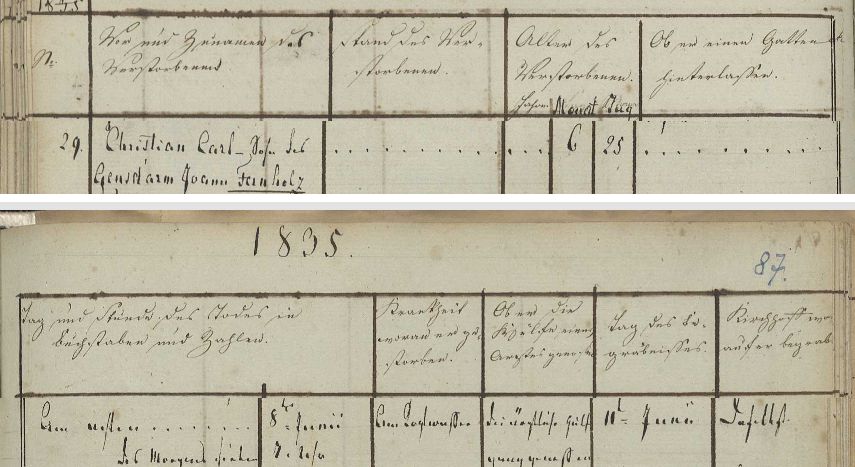 1835
Nr.
Vor und Zunamen des
Verstorbenen
Stand des Ver-
storbenen.
Alter des
Verstorbenen.
Jahre. Monat Tag
Ob er einen Gatten
hinterlassen.
29.
Christian Carl - Sohn des
Gensd'arm Joann Feinholz
6
25
1835.
87.
Tag und Stunde des Todes in
Buchstaben und Zahlen.
Krankheit
woran er ge-
storben.
Ob er die
Hülfe eines
Arztes genossen
Tag des Be-
gräbnisses.
Kirchhoff wo-
rauf er begrab
Am achten
des Morgens sieben
8ten Junii
7. Uhr
Am
die ärztliche Hülfe
genossen
11t. Junii
Daselbst